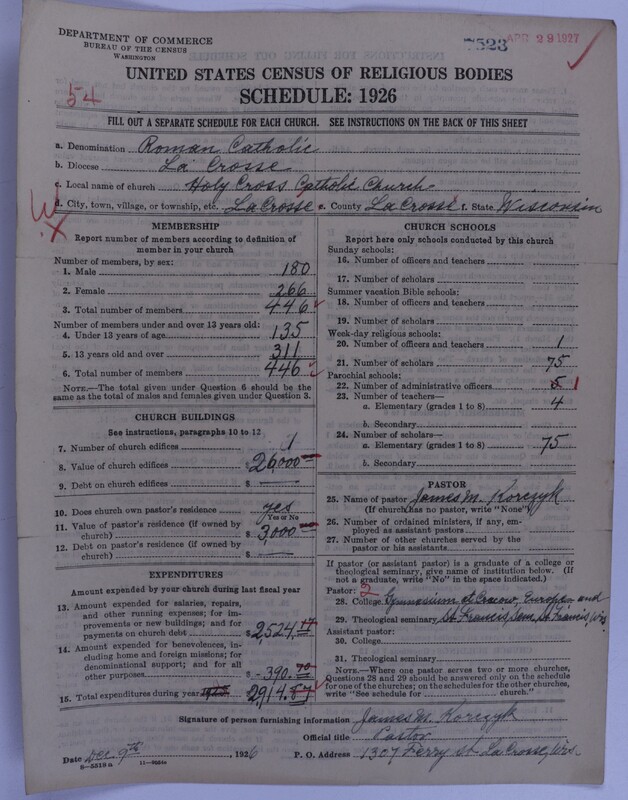 DEPARTMENT OF COMMERCE
BUREAU OF THE CENSUS
WASHINGTON
7523 APR 29 1927
UNITED STATES CENSUS OF RELIGIOUS BODIES
SCHEDULE: 1926
54
FILL OUT A SEPARATE SCHEDULE FOR EACH CHURCH. SEE INSTRUCTIONS ON THE BACK OF THIS SHEET
a. Denomination Roman Catholic
b. Diocese La Crosse
c. Local name of church Holy Cross Catholic Church
d. City, town, village, or township, etc. La Crosse e. County La Crosse f. State Wisconsin
MEMBERSHIP
Report number of members according to definition of
member in your church
Number of members, by sex:
1. Male 180
2. Female 266
3. Total number of members 446
Number of members under and over 13 years old:
4. Under 13 years of age 135
5. 13 years old and over 311
6. Total number of members 446
NOTE.—The total given under Question 6 should be the
same as the total of males and females given under Question 3.
CHURCH BUILDINGS
See instructions, paragraphs 10 to 12
7. Number of church edifices 1
8. Value of church edifices $ 26,000
9. Debt on church edifices $ —
10. Does church own pastor's residence? yes
Yes or No
11. Value of pastor's residence (if owned by
church) $ 3,000
12. Debt on pastor's residence (if owned by
church) $ —
EXPENDITURES
Amount expended by your church during last fiscal year
13. Amount expended for salaries, repairs,
and other running expenses; for im-
provements or new buildings; and for
payments on church debt $ 2,524.17
14. Amount expended for benevolences, in-
cluding home and foreign missions; for
denominational support; and for all
other purposes $ 390.70
15. Total expenditures during year $ 2914.87
CHURCH SCHOOLS
Report here only schools conducted by this church
Sunday schools:
16. Number of officers and teachers
17. Number of scholars
Summer vacation Bible schools:
18. Number of officers and teachers
19. Number of scholars
Week-day religious schools:
20. Number of officers and teachers 1
21. Number of scholars 75
Parochial schools:
22. Number of administrative officers 5 1
23. Number of teachers—
a. Elementary (grades 1 to 8) 4
b. Secondary
24. Number of scholars—
a. Elementary (grades 1 to 8) 75
b. Secondary
PASTOR
25. Name of pastor James M. Korczyk
(If church has no pastor, write "None")
26. Number of ordained ministers, if any, em-
ployed as assistant pastors
27. Number of other churches served by the
pastor or his assistants
If pastor (or assistant pastor) is a graduate of a college or
theological seminary, give name of institution below. (If
not a graduate, write "No" in the space indicated.)
Pastor: 2
28. College Gymnasium at Cracow, Europa and
29. Theological seminary St. Francis Sem, St. Francis, Wis.
Assistant pastor:
30. College
31. Theological seminary
NOTE.—Where one pastor serves two or more churches,
Questions 28 and 29 should be answered only on the schedule
for one of the churches; on the schedules for the other churches,
write "See schedule for church."
Signature of person furnishing information James M. Korczyk
Official title Pastor
Date Dec. 9th 1926 P. O. Address 1307 Ferry st. La Crosse, Wis.
8—5518a 11—9264a